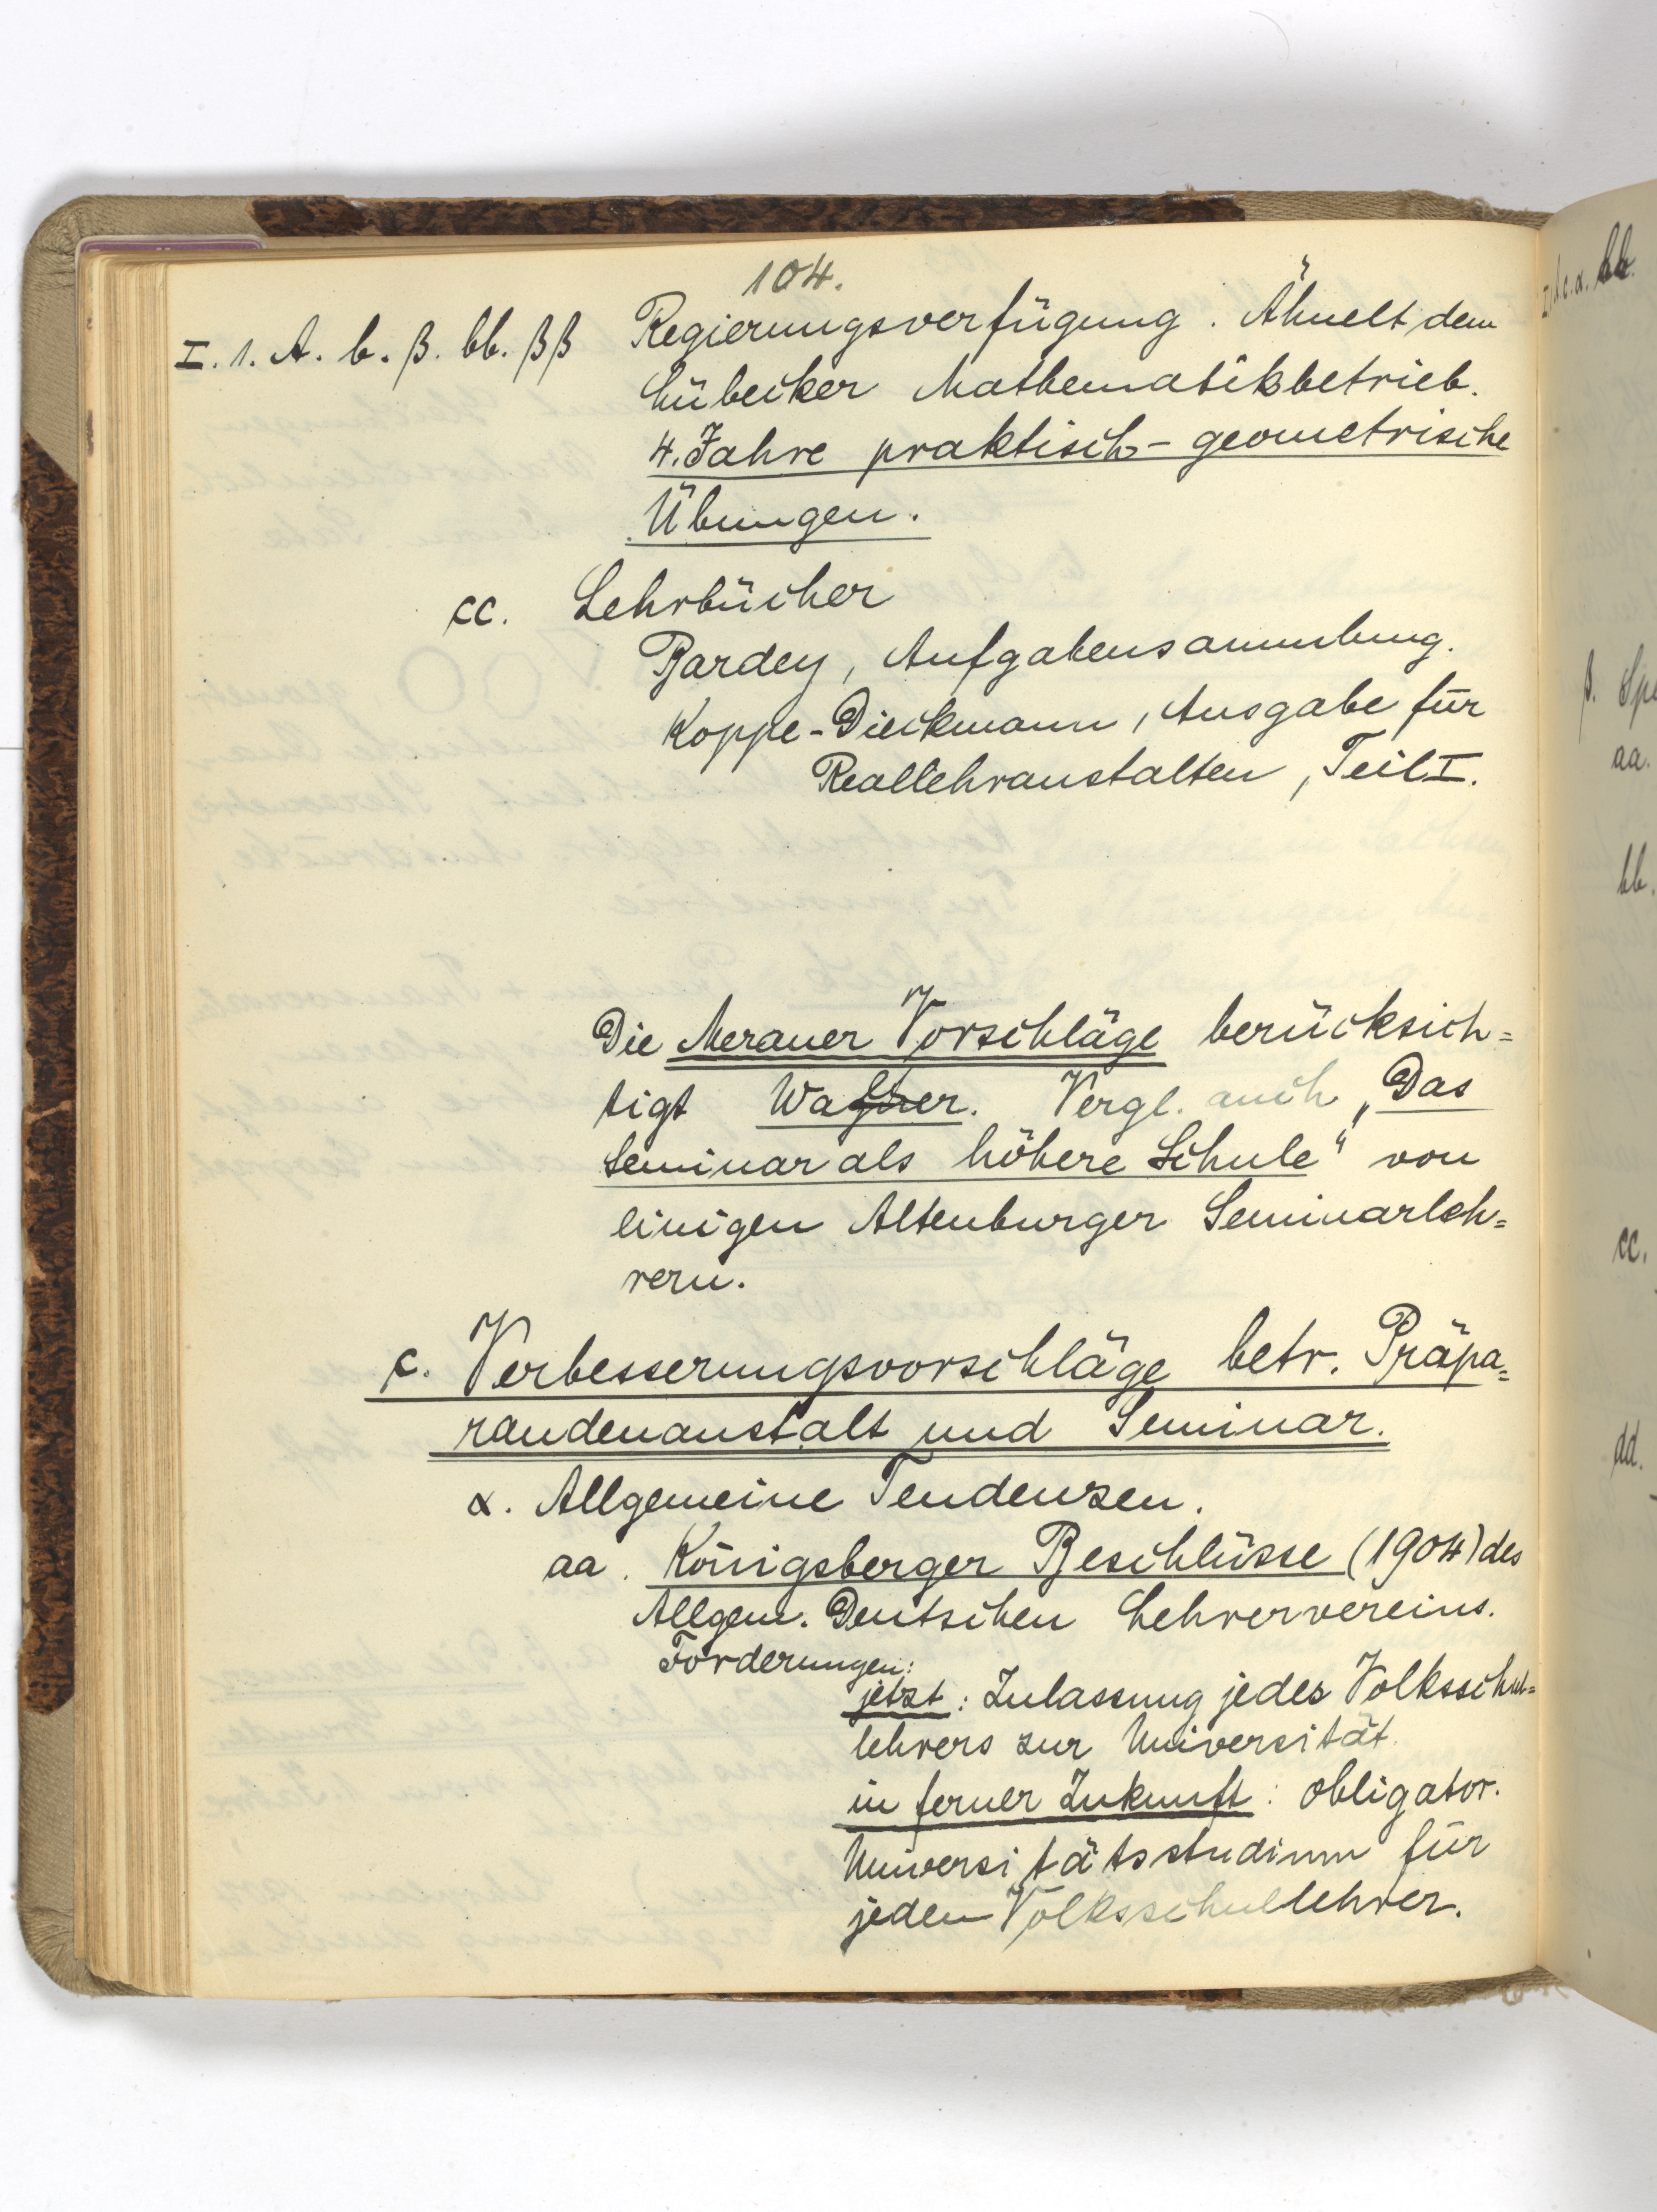 104.
I. 1. A. b. β. bb. ββ Regierungsverfügung. Ähnelt dem
Lübecker Mathematikbetrieb.
4. Jahre praktisch-geometrische
Übungen.
cc. Lehrbücher
Bardey, Aufgabensammlung.
Koppe-Dieckmann, Ausgabe für
Reallehranstalten, Teil I.
Die Meraner Vorschläge berücksich=
tigt Vergl. auch „Das
Seminar als höhere Schule" von
einigen Altenburger Seminarleh=
rern.
c. Verbesserungsvorschläge betr. Präpa=
randenanstalt und Seminar.
α. Allgemeine Tendenzen.
aa. Königsberger Beschlüsse (1904) des
Allgem. Deutschen Lehrervereins.
Forderungen:
jetzt: Zulassung jedes Volksschul=
lehrers zur Universität.
in ferner Zukunft: obligator.
Universitätsstudium für
jeden Volksschullehrer.
β.
aa.
bb.
cc.
dd.